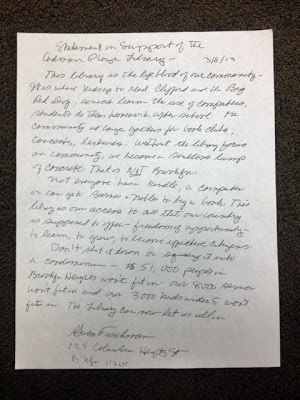 Statement in Support of the
Cadman Plaza Library - 3/6/13
This library is the lifeblood of our community -
It is where kids go to read Clifford and the Big
Red Dog, seniors learn the use of computers,
students do their homework after school. The
community at large gathers for book clubs,
concerts, lectures. Without the library focus
on community, we become a soulless lump
of concrete. That is NOT Brooklyn.
Not everyone has a Kindle, a computer
or can go to Barnes + Noble to buy a book. This
library is our access to all that our country
is supposed to offer - freedom of opportunity
to learn, to grow, to become effective citizens.
Don't shut it down or squeeze it into
a condominium - 51,000 people in
Brooklyn Heights won't fit in. Our 8000 seniors
won't fit in and our 3000 kids under 5 won't
fit in. The library can now let us all in.
129 Columbia Heights
Bklyn 11201